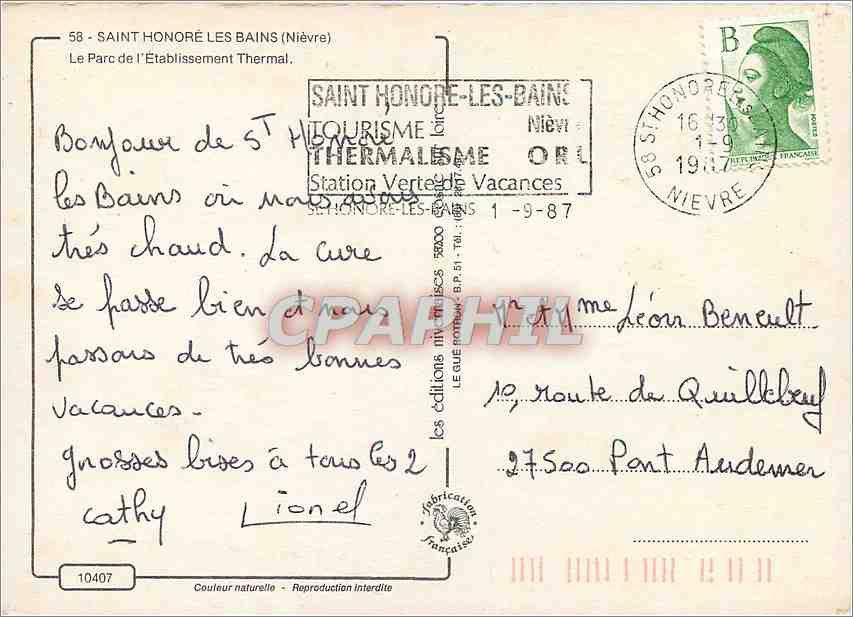 58 - SAINT HONORÉ LES BAINS (Nièvre)
Le Parc de l'Établissement Thermal.
Bonjour de St Honoré
les Bains où nous avons
très chaud. La cure
se passe bien et nous
passons de très bonnes
vacances.
grosses bises à tous les 2
Cathy Lionel
10407
Couleur naturelle - Reproduction interdite
les éditions nivernaises 58200 COSNE SUR Loire
LE GUÉ ROTHON - B.P. 51 - Tél. :
Fabrication
française
SAINT HONORÉ-LES-BAINS
TOURISME Nièvr
THERMALISME ORL
Station Verte de Vacances
ST HONORE-LES-BAINS 1 -9-87
58 ST HONORE LES BAINS
16 H 30
1-9
1987
NIEVRE
B
POSTES
REPUBLIQUE FRANÇAISE
Mr et Mme Léon Beneult
10, route de Quillebeuf
27500 Pont Audemer
CPAPHIL